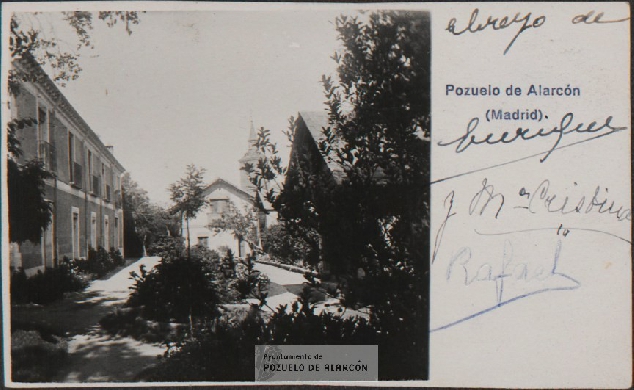 abrazo de
Pozuelo de Alarcón
(Madrid).
Enrique
y Mª Cristina
Rafael
Ayuntamiento de
POZUELO DE ALARCÓN